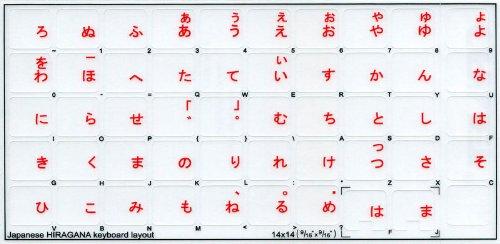 ぁ ぅ ぇ ぉ ゃ ゅ ょ
ろ ぬ ふ あ う え お や ゆ よ
~ 1 2 3 4 5 6 7 8 9
を ー ぃ
わ ほ へ た て い す か ん な
0 - = Q W E R T Y U
「 」
に ら せ ゛ 。 む ち と し は
I O P { } \ A S D F
っ
き く ま の り れ け つ さ そ
G H J K L : " Z X C
、 。
ひ こ み も ね る め は ま
V B N M < > ? F J
Japanese HIRAGANA keyboard layout 14x14 (9/16" x 9/16")